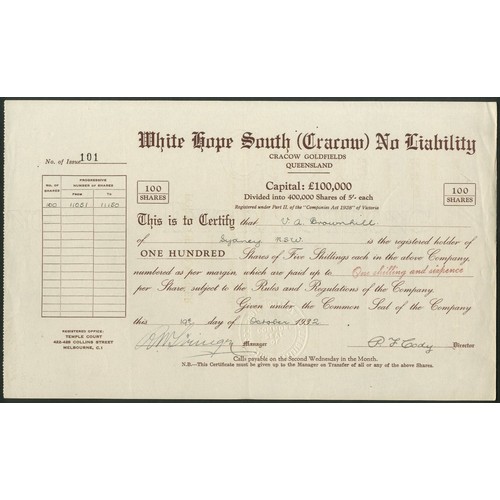 White Hope South (Cracow) No Liability
CRACOW GOLDFIELDS
QUEENSLAND
No. of Issue 101
Capital: £100,000
Divided into 400,000 Shares of 5/- each
Registered under Part II. of the "Companies Act 1928" of Victoria
NO. OF SHARES
PROGRESSIVE NUMBER OF SHARES
FROM TO
100 11051 11150
100 SHARES
100 SHARES
This is to Certify that V. A. Brownhill
of Sydney N.S.W. is the registered holder of
ONE HUNDRED Shares of Five Shillings each in the above Company,
numbered as per margin, which are paid up to One shilling and sixpence
per Share, subject to the Rules and Regulations of the Company.
Given under the Common Seal of the Company
this day of October 1932
Manager
P. F. Cody Director
REGISTERED OFFICE:
TEMPLE COURT
422-428 COLLINS STREET
MELBOURNE, C.1
Calls payable on the Second Wednesday in the Month.
N.B.—This Certificate must be given up to the Manager on Transfer of all or any of the above Shares.